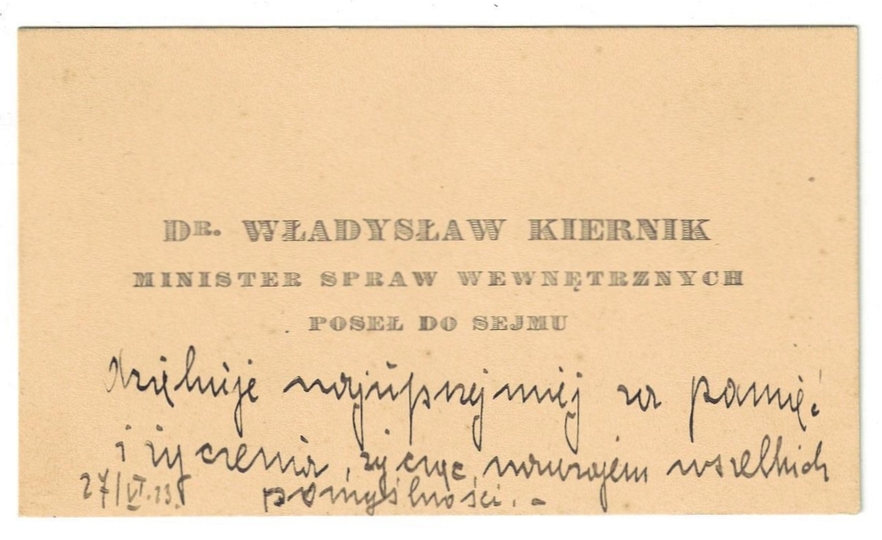 DR. WŁADYSŁAW KIERNIK
MINISTER SPRAW WEWNĘTRZNYCH
POSEŁ DO SEJMU
dziękuje najuprzejmiej za pamięć
i życzenia, życząc nawzajem wszelkich
27/VI.23. pomyślności. -